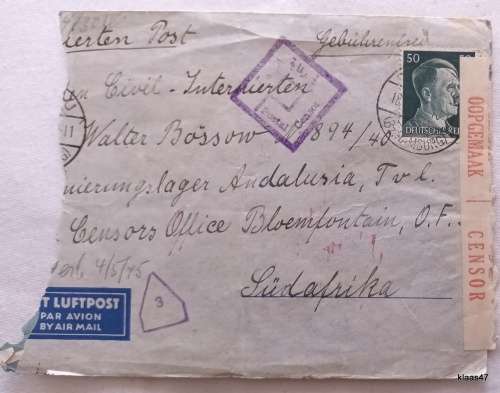 ierten Post
Gebührenfrei
50 50
DEUTSCHES REICH
en Civil-Internierten
Postal Censor
Walter Bössow 894/40
HAMBURG
nierungslager Andalusia, Tvl.
Censors Office Bloemfontain, O.F.
4/5/45
Südafrika
T LUFTPOST
PAR AVION
BY AIR MAIL
3
OOPGEMAAK
CENSOR
klaas47